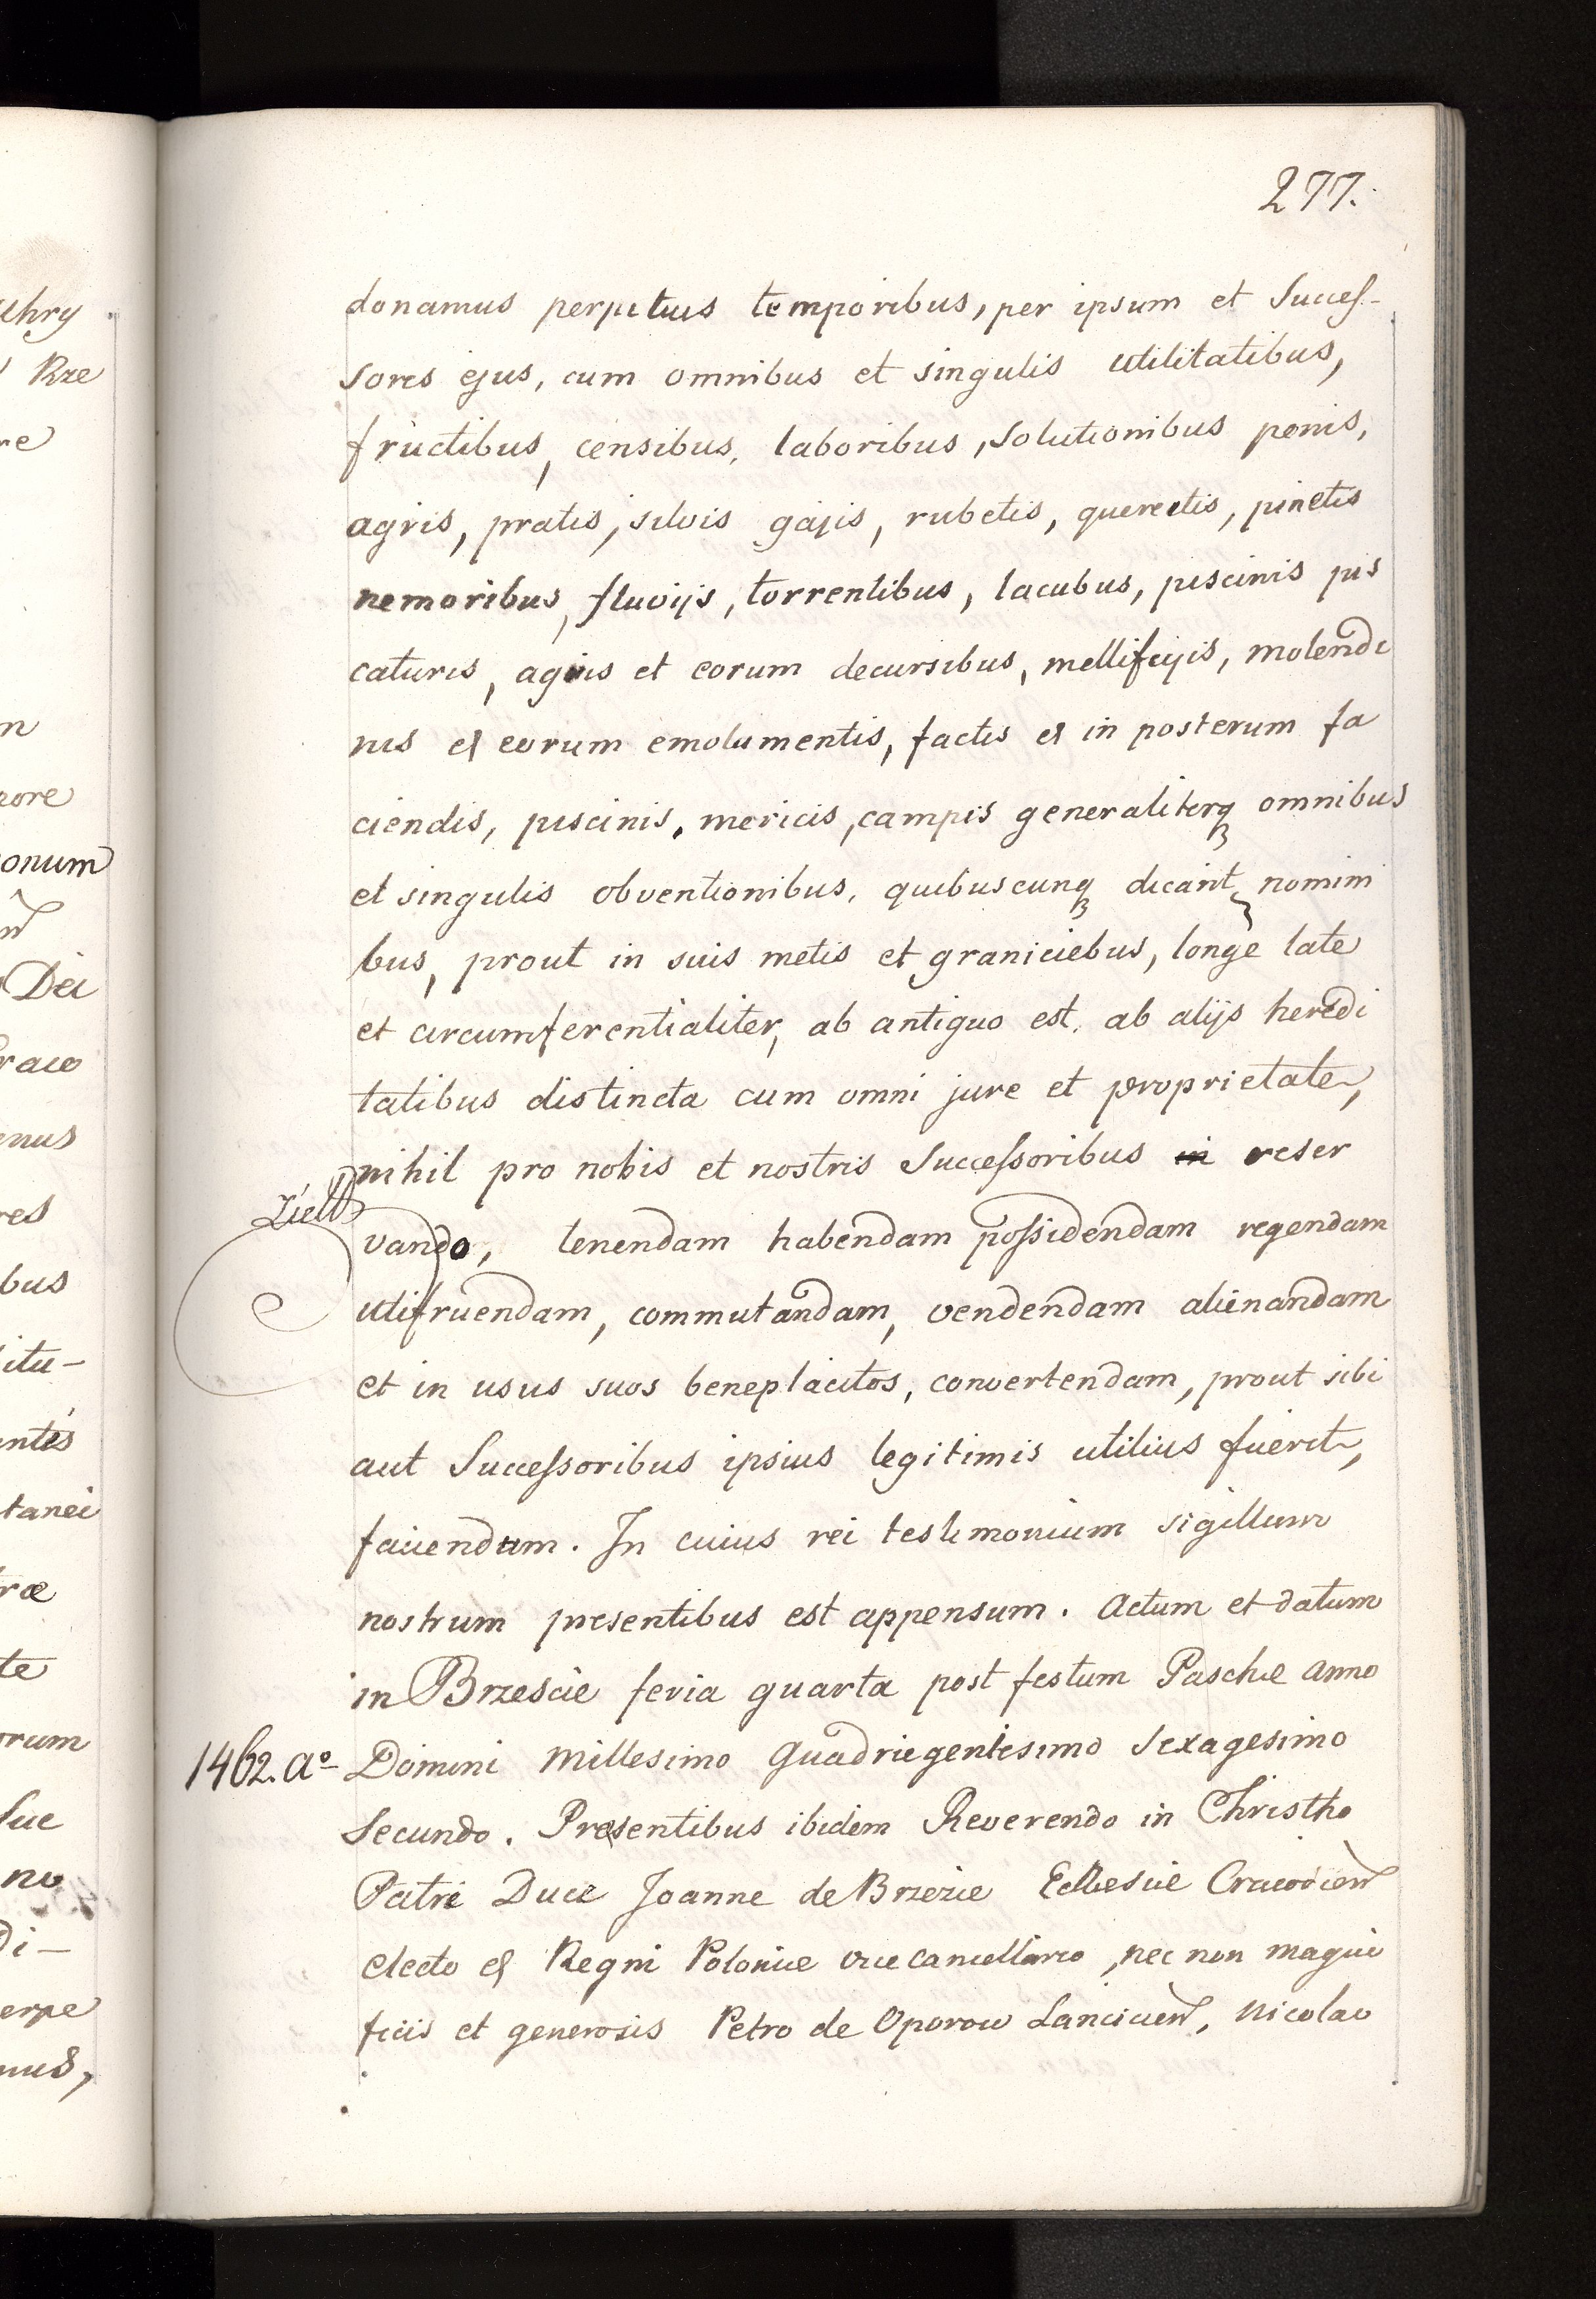 277.
donamus perpetuis temporibus, per ipsum et Succes-
sores ejus, cum omnibus et singulis utilitatibus,
fructibus, censibus, laboribus, solutionibus penis,
agris, pratis, silvis gajis, rubetis, quercetis, pinetis
nemoribus, fluvijs, torrentibus, lacubus, piscinis pis
caturis, aquis et eorum decursibus, mellificijs, molendi
nis et eorum emolumentis, factis et in posterum fa
ciendis, piscinis, mericis, campis generaliterq3 omnibus
et singulis obventionibus, quibuscunq3 dicant nomini
bus, prout in suis metis et graniciebus, longe late
et circumferentialiter, ab antiquo est, ab alijs heredi
tatibus distincta cum omni jure et proprietate,
nihil pro nobis et nostris Successoribus in reser
vando, tenendam habendam possidendam regendam
utifruendam, commutandam, vendendam alienandam
et in usus suos beneplacitos, convertendam, prout sibi
aut Successoribus ipsius legitimis utilius fuerit,
faciendam. In cuius rei testimonium sigillum
nostrum presentibus est appensum. Actum et datum
in Brzescie feria quarta post festum Pasche Anno
1462. Ao Domini Millesimo Quadriegentesimo Sexagesimo
Secundo. Presentibus ibidem Reverendo in Christho
Patri Duce Joanne de Brzezie Ecclesie Cracovien
electo et Regni Polonie vicecancellario, nec non magni
ficis et generosis Petro de Oporow Lancicien, Nicolao